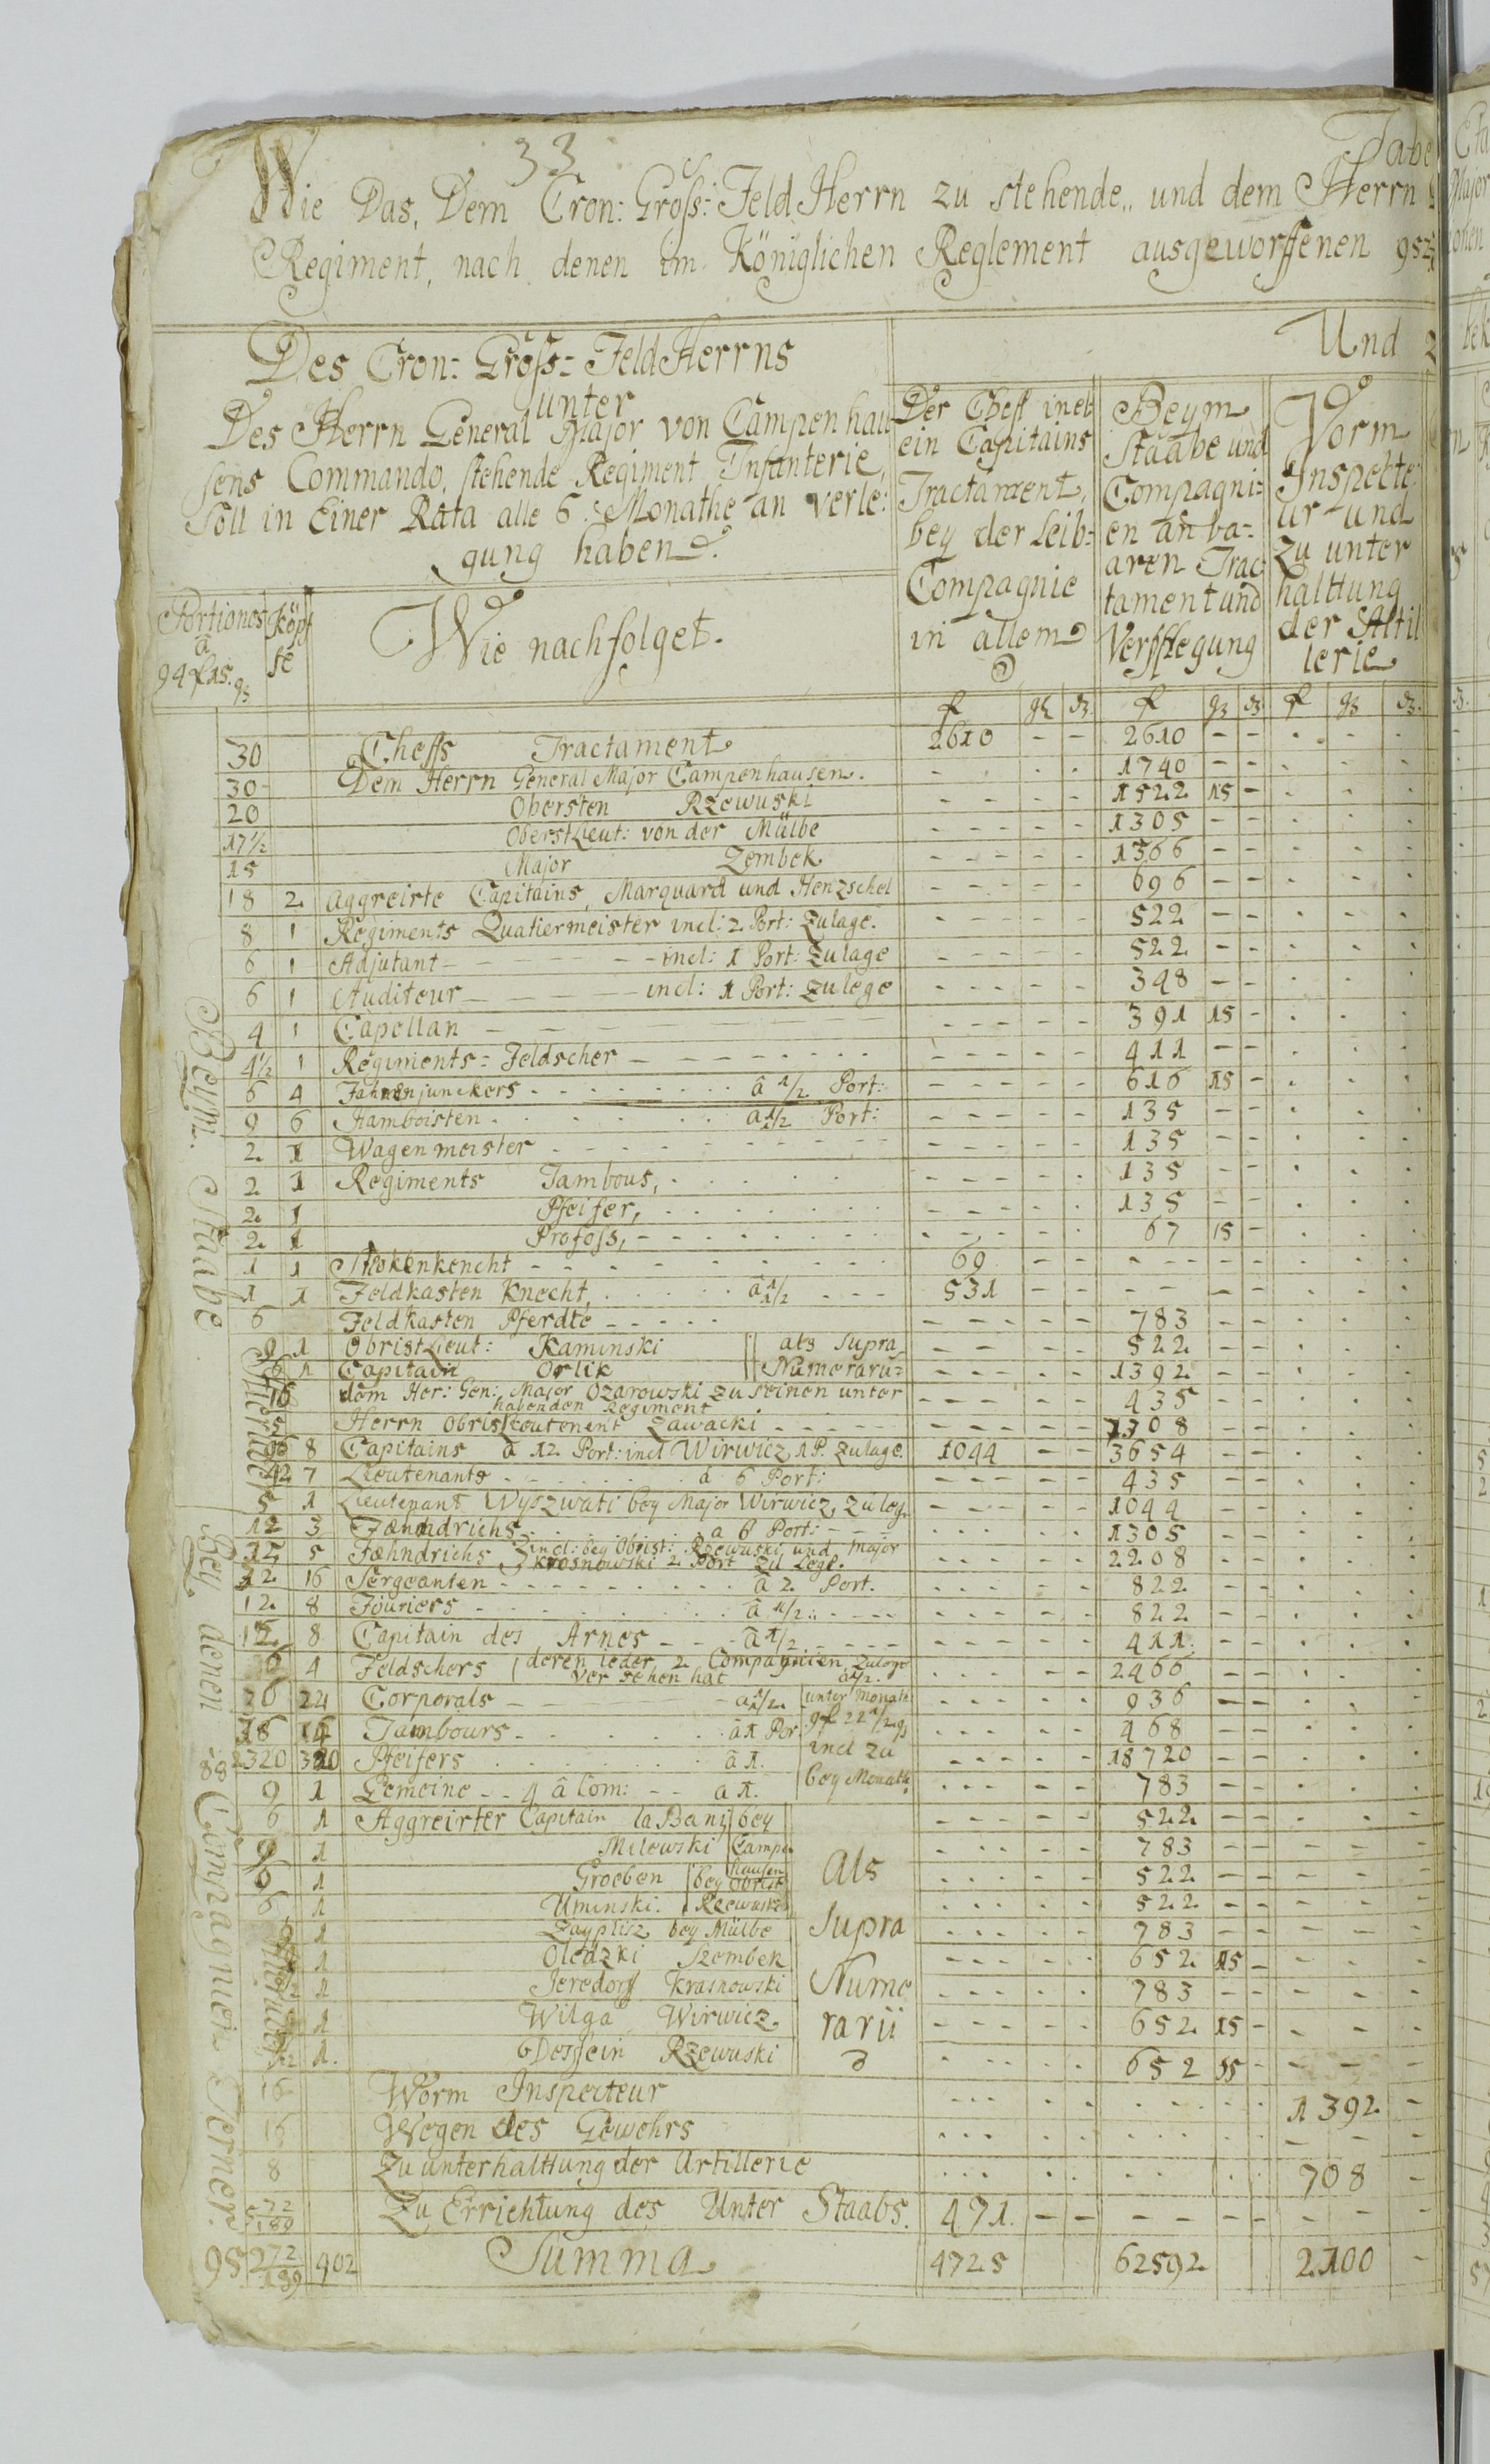 33
Tabe
Wie Das, Dem Cron: Groß: Feld Herrn zu stehende,, und dem Herrn
Regiment, nach denen im Königlichen Reglement ausgeworffenen 952
Des Cron: Groß: Feld Herrns
unter
Des Herrn General Major von Campenhau
sens Commando, stehende Regiment Infanterie,
soll in Einer Rata alle 6. Monathe an verle:
gung haben.
Und
Der Cheff incl:
ein Capitains
Tractament,
bey der Leib:
Compagnie
in allem
Beym
Staabe und
Compagni:
en an ba:
aren Trac
tament und
Verpflegung
Vorm
Inspecte
ur und
zu unter
halttung
der Altil
lerie
Portiones
â
94 f 15. gs
Köpf
fe
Wie nachfolget.
30 Cheffs Tractament 2610 – – 2610 – –
30 Dem Herrn General Major Campenhausen. 1740 – –
20 Obersten Rzewuski 1522 15 –
17½ Oberst Lieut: von der Mülbe 1305 – –
15 Major Zembek 1566 – –
18 2 aggreirte Capitains, Marquard und Henzschel 696 – –
8 1 Regiments Quatiermeister incl: 2 Port: Zulage. 522 – –
6 1 Adjutant – – – incl: 1 Port: Zulage 522 – –
6 1 Auditeur – – – incl: 1 Port: Zulege 348 – –
4 1 Capellan 391 15 –
4½ 1 Regiments: Feldscher 411 – –
6 4 Fahnenjunckers â 1/2 Port: 616 15 –
9 6 Hamboisten â 1/2 Port: 135 – –
2 1 Wagenmeister 135 – –
2 1 Regiments Tambous, 135 – –
2 1 Pfeifer, 135 – –
2 1 Profoss, 67 15 –
1 1 Stokenkencht 69 – –
1 1 Feldkasten Knecht, â 1/2 531 – –
6 Feldkasten Pferdte 783 – –
9 1 Obrist Lieut: Kaminski als Supra 522 – –
6 1 Capitain Orlik Numeraru: 1392 – –
16 dem Her: Gen: Major Ozarowski zu seinen unter 435 – –
habenden Regiment
5 Herrn Obristleutenent Zawacki 1708 – –
96 8 Capitains â 12 Port: incl Wirwicz 1 P. zulage. 1044 – – 3654 – –
42 7 Lieutenants â 6 Port: 435 – –
5 1 Lieutenant Wyszwati bey Major Wirwicz, zuleg. 1044 – –
12 3 Fæhndrichs a 6 Port: 1305 – –
15 5 Fæhndrichs incl: bey Obrist: Rzewuski, und Major 2208 – –
Krosnowski 2 Port zu Lege.
12 16 Sergeanten â 2 Port. 822 – –
12 8 Fouriers â 1/2 822 – –
12 8 Capitain des Armes â 1/2 411 – –
6 4 Feldschers (deren Ieder 2 Compagnien Zulage 2466 – –
ver sehen hat â 1/2.
26 24 Corporals â 1/2. unter Monath 936 – –
18 16 Tambours â 1 Por. 9 f 22 1/2 gs 468 – –
2320 320 Pfeifers â 1. incl zu 18720 – –
9 1 Gemeine – – 4 â Com: – – a 1. bey Monath. 783 – –
6 1 Aggreirter Capitain la Bani bey 522 – –
9 1 Milewski Campen 783 – –
hausen
6 1 Groeben bey Obrist als 522 – –
6 1 Uminski. Rzewuski 522 – –
1 Zayplisz bey Mülbe Supra 783 – –
1 Oledzki Szembek 652 15 –
1 Jeredorf Krasnowski Nume 783 – –
1 Wilga Wirwicz rarii 652 15 –
1. Dessein Rzewuski 652 15 –
16 Worm Inspecteur 1392 –
16 Wegen des Gewehrs
8 Zu unterhalttung der Artillerie 708 –
5 72/189 Zu Errichtung des Unter Staabs. 471. – –
952 72/189 402 Summa 4725 62592 2100 –
Beym Staabe
Bey denen 8 Compagnien Ferner.